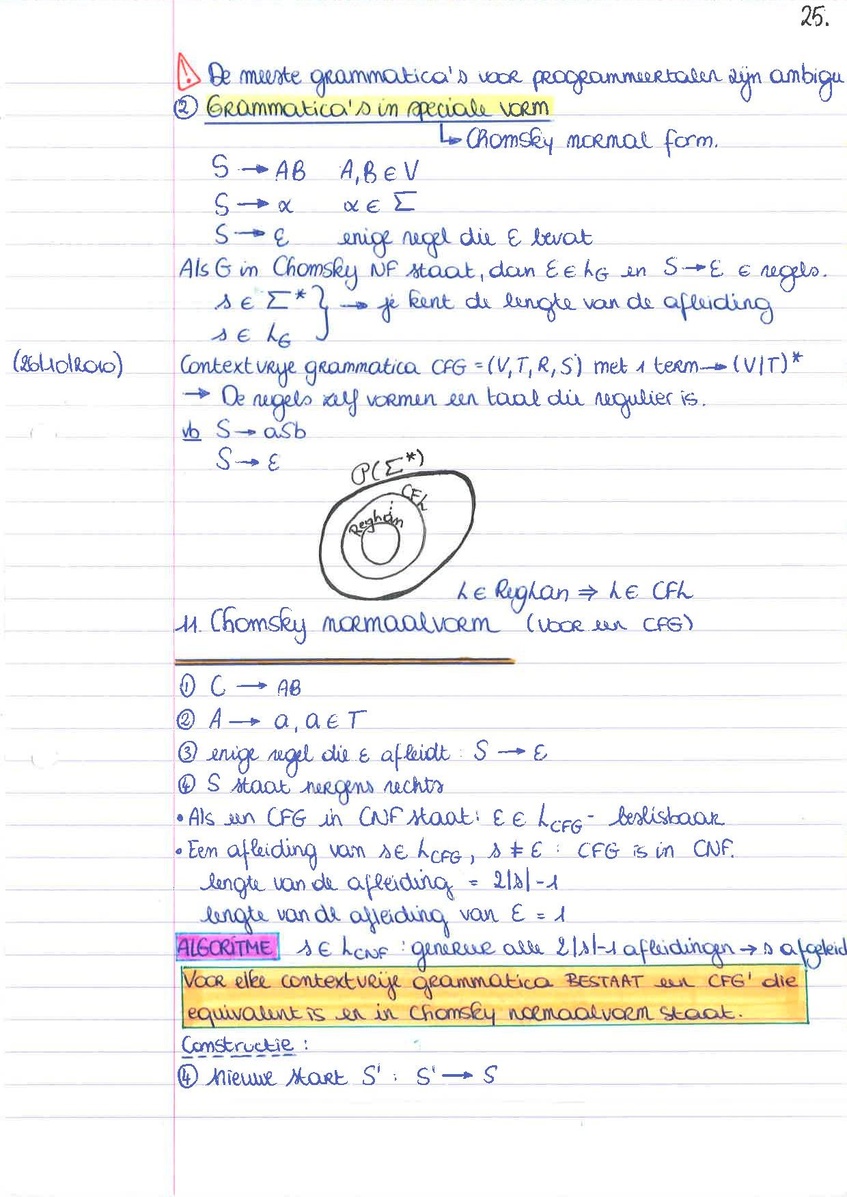 25.
De meeste grammatica's voor programmeertalen zijn ambigu
② Grammatica's in speciale vorm
↳ Chomsky normal form.
S → AB A,B ∈ V
S → α α ∈ Σ
S → ε enige regel die ε bevat
Als G in Chomsky NF staat, dan ε ∈ L_G en S → ε ∈ regels.
s ∈ Σ* } → je kent de lengte van de afleiding
s ∈ L_G
(26/10/2010) Contextvrije grammatica CFG = (V,T,R,S) met 1 term → (V|T)*
→ De regels zelf vormen een taal die regulier is.
vb S → aSb
S → ε
P(Σ*)
CFL
RegLan
L ∈ RegLan ⇒ L ∈ CFL
11. Chomsky normaalvorm (voor een CFG)
① C → AB
② A → a, a ∈ T
③ enige regel die ε afleidt : S → ε
④ S staat nergens rechts
• Als een CFG in CNF staat: ε ∈ L_CFG - beslisbaar
• Een afleiding van s ∈ L_CFG, s ≠ ε : CFG is in CNF.
lengte van de afleiding = 2|s|-1
lengte van de afleiding van ε = 1
ALGORITME s ∈ L_CNF : genereer alle 2|s|-1 afleidingen → s afgeleid
Voor elke contextvrije grammatica BESTAAT een CFG' die
equivalent is en in Chomsky normaalvorm staat.
Constructie :
④ Nieuwe start S' : S' → S